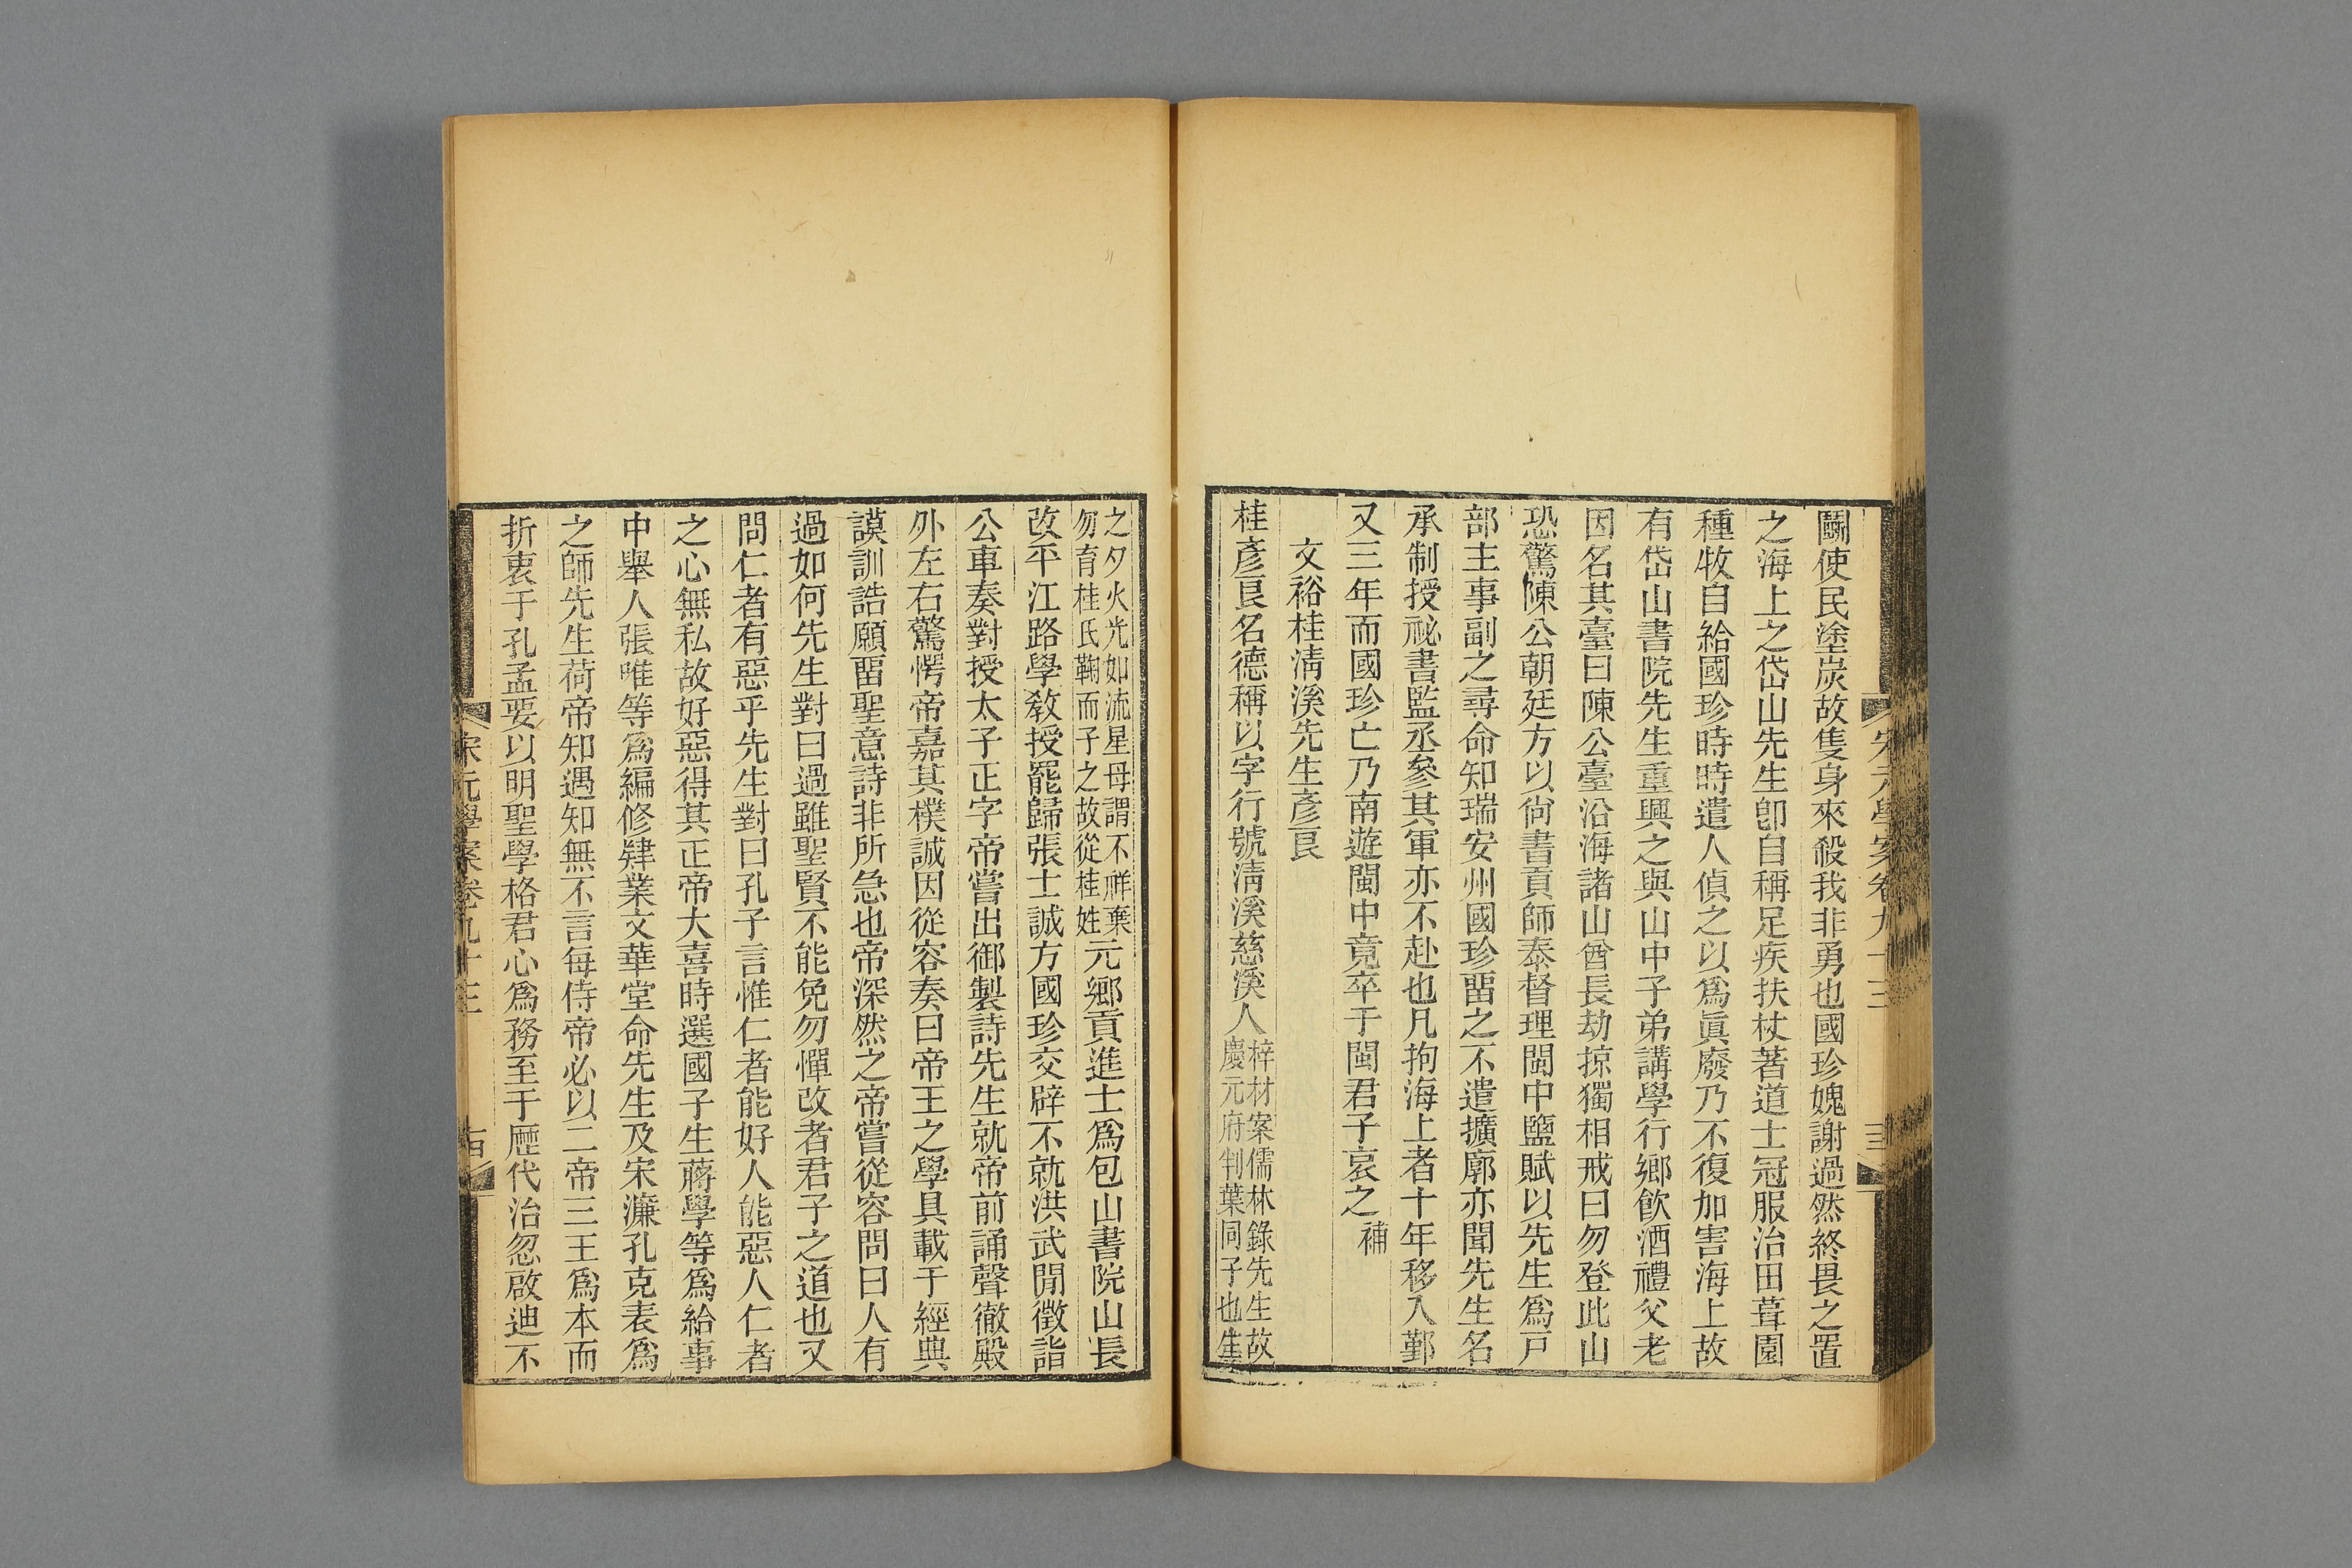 鬭使民塗炭故隻身來殺我非勇也國珍媿謝過然終畏之置
之海上之岱山先生卽自稱足疾扶杖著道士冠服治田葺園
種牧自給國珍時時遣人偵之以爲眞廢乃不復加害海上故
有岱山書院先生重興之與山中子弟講學行鄉飮酒禮父老
因名其臺曰陳公臺沿海諸山酋長劫掠獨相戒曰勿登此山
恐驚陳公朝廷方以尙書貢師泰督理閩中鹽賦以先生爲戸
部主事副之尋命知瑞安州國珍畱之不遣擴廓亦聞先生名
承制授祕書監丞參其軍亦不赴也凡拘海上者十年移入鄞
又三年而國珍亡乃南遊閩中竟卒于閩君子哀之補
文裕桂淸溪先生彥良
桂彥良名德稱以字行號淸溪慈溪人梓材案儒林錄先生故
慶元府判葉同子也生
之夕火光如流星母謂不祥棄
勿育桂氏鞠而子之故從桂姓元鄉貢進士爲包山書院山長
改平江路學敎授罷歸張士誠方國珍交辟不就洪武閒徵詣
公車奏對授太子正字帝嘗出御製詩先生就帝前誦聲徹殿
外左右驚愕帝嘉其樸誠因從容奏曰帝王之學具載于經典
謨訓誥願畱聖意詩非所急也帝深然之帝嘗從容問曰人有
過如何先生對曰過雖聖賢不能免勿憚改者君子之道也又
問仁者有惡乎先生對曰孔子言惟仁者能好人能惡人仁者
之心無私故好惡得其正帝大喜時選國子生蔣學等爲給事
中舉人張唯等爲編修肄業文華堂命先生及宋濂孔克表爲
之師先生荷帝知遇知無不言每侍帝必以二帝三王爲本而
折衷于孔孟要以明聖學格君心爲務至于歷代治忽啟迪不
宋元學案卷九十三
古